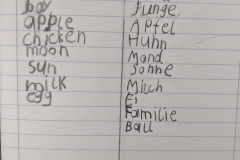 boy
apple
chicken
moon
sun
milk
egg
Junge
Apfel
Huhn
Mond
Sonne
Milch
Ei
Familie
Ball